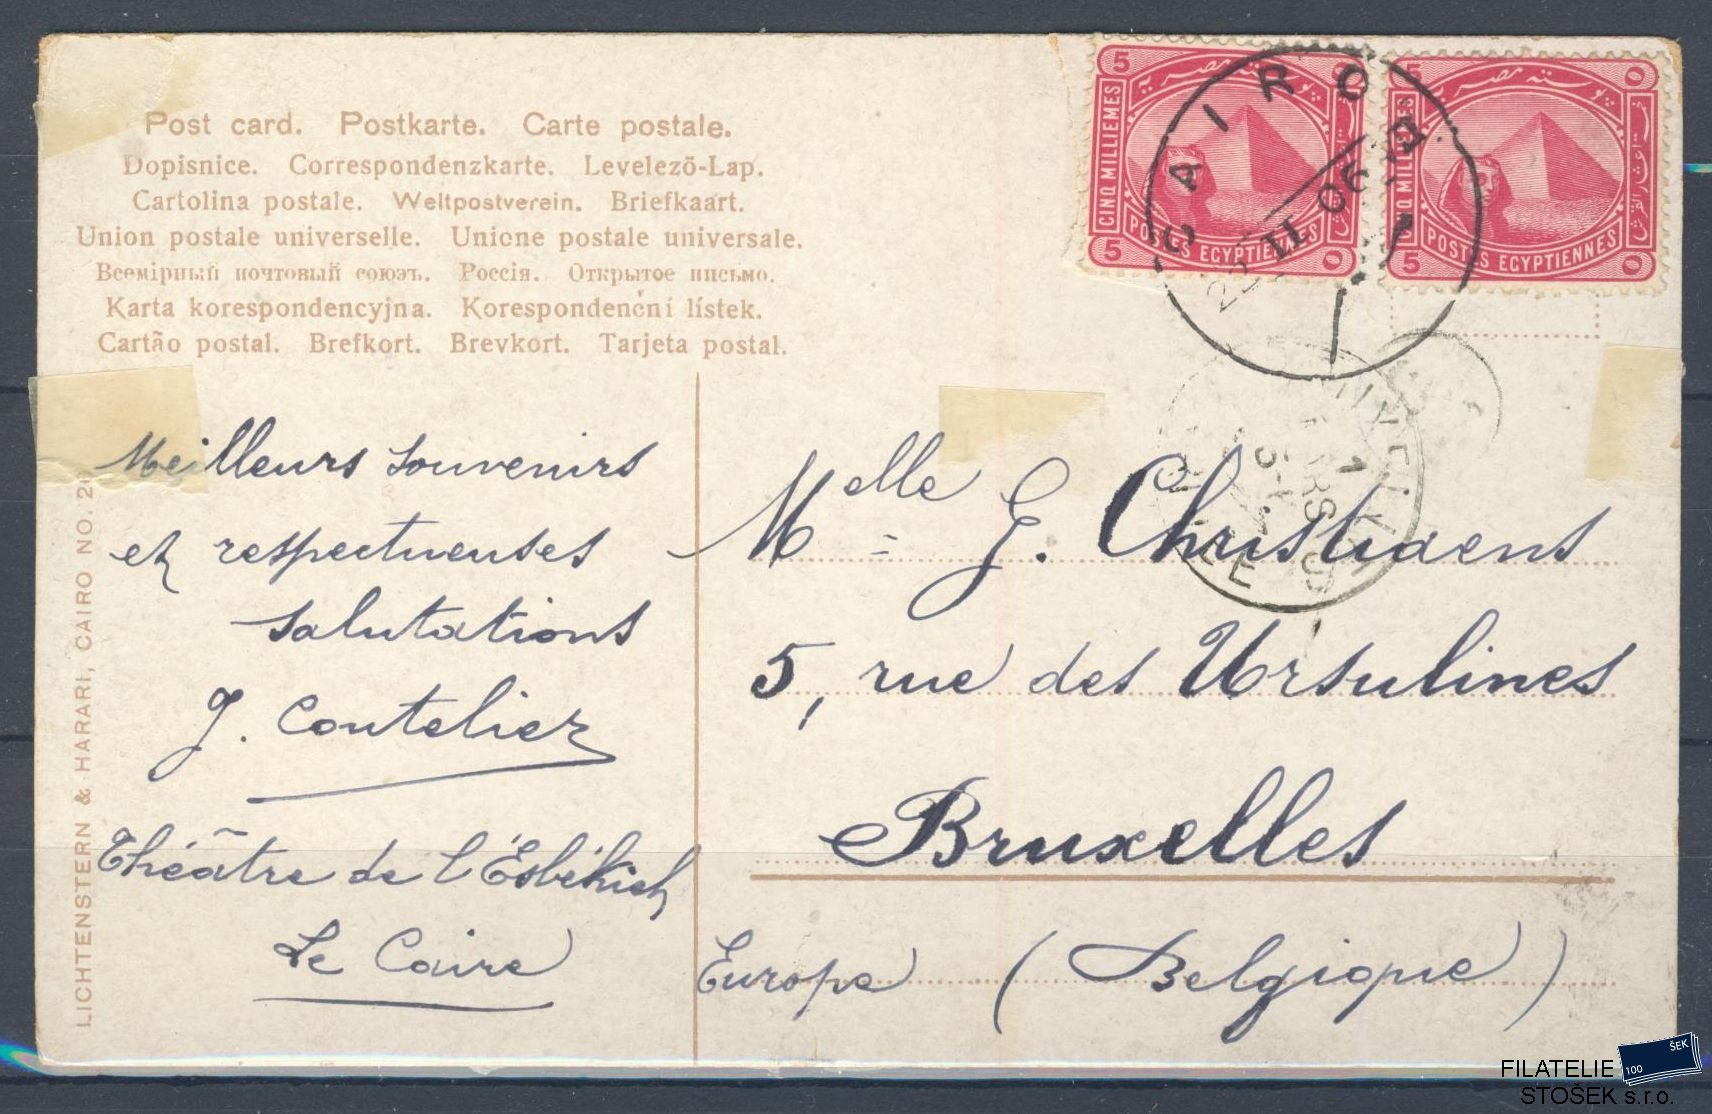 Post card. Postkarte. Carte postale.
Dopisnice. Correspondenzkarte. Levelező-Lap.
Cartolina postale. Weltpostverein. Briefkaart.
Union postale universelle. Unione postale universale.
Всемірный почтовый союзъ. Россія. Открытое письмо.
Karta korespondencyjna. Korespondenční lístek.
Cartão postal. Brefkort. Brevkort. Tarjeta postal.
5
CINQ MILLIEMES
POSTES EGYPTIENNES
5
بوسته مصرية
5
POSTES EGYPTIENNES
5
CAIRO
II 06
Meilleurs souvenirs
et respectueuses
salutations
J. Coutelier
Théâtre de l'Esbékieh
Le Caire
LICHTENSTERN & HARARI, CAIRO NO.
Melle J. Christiaens
5, rue des Ursulines
Bruxelles
Europe (Belgique)
FILATELIE
STOŠEK s.r.o.
100
ŠEK